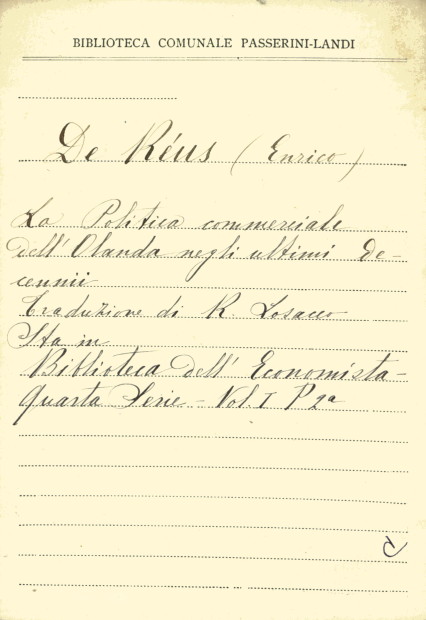 BIBLIOTECA COMUNALE PASSERINI-LANDI
De Réus (Enrico)
La Politica commerciale
dell' Olanda negli ultimi de-
cennii
Traduzione di R. Losacco
Sta in
Biblioteca dell' Economista -
quarta Serie - Vol. I P 2a